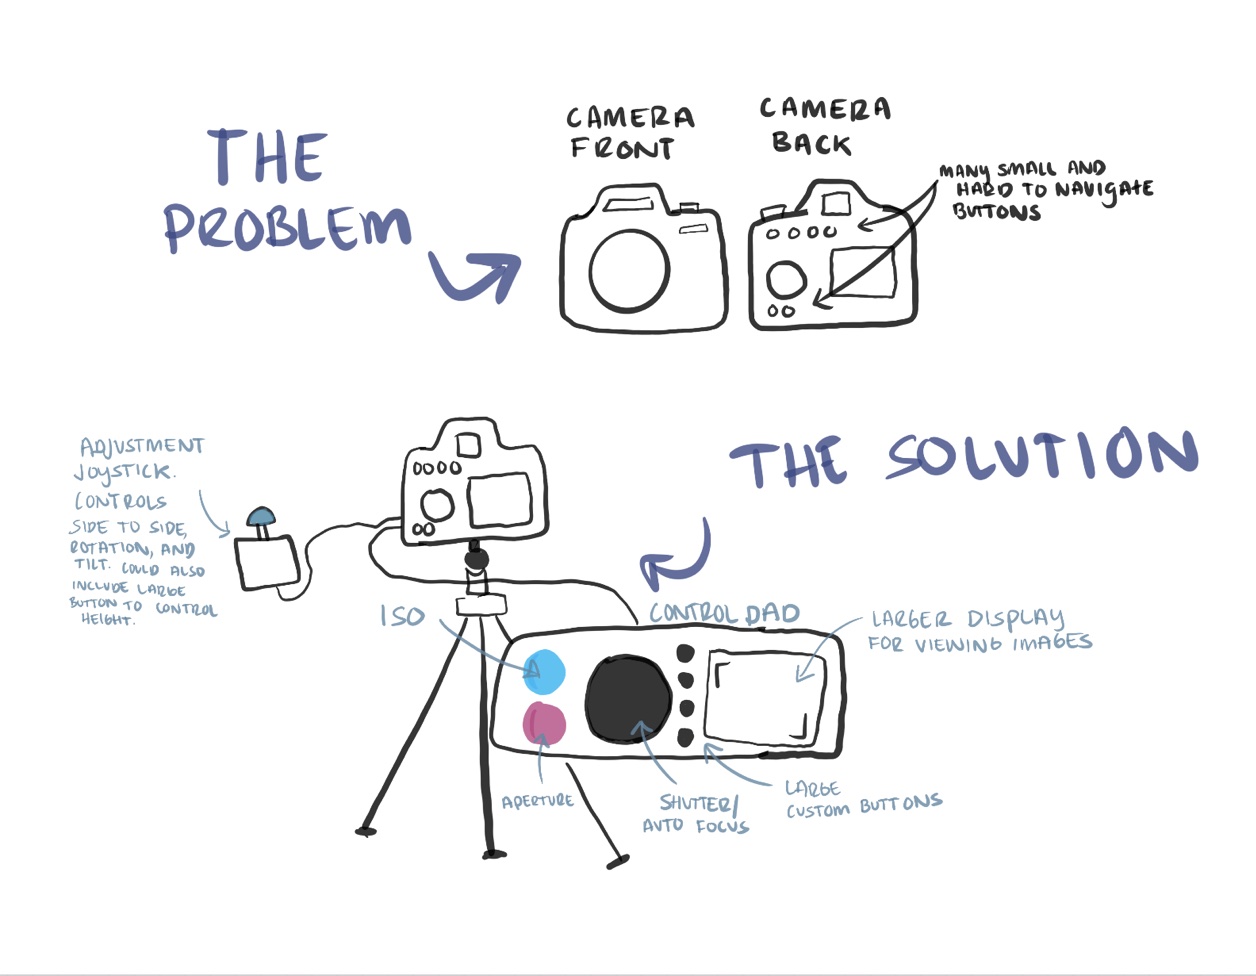 THE
PROBLEM
CAMERA
FRONT
CAMERA
BACK
MANY SMALL AND
HARD TO NAVIGATE
BUTTONS
THE SOLUTION
ADJUSTMENT
JOYSTICK.
CONTROLS
SIDE TO SIDE,
ROTATION, AND
TILT. COULD ALSO
INCLUDE LARGE
BUTTON TO CONTROL
HEIGHT.
ISO
CONTROL PAD
LARGER DISPLAY
FOR VIEWING IMAGES
APERTURE
SHUTTER/
AUTO FOCUS
LARGE
CUSTOM BUTTONS